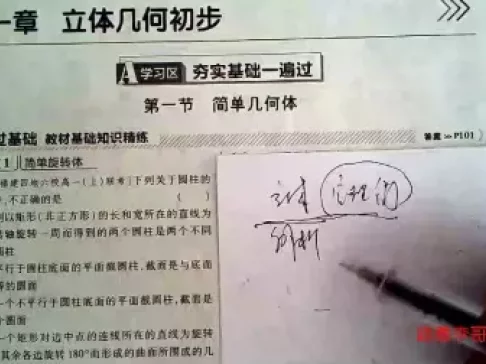 一章 立体几何初步
A学习区 夯实基础一遍过
第一节 简单几何体
过基础 教材基础知识精练
答案≫P101
1 简单旋转体
福建四地六校高一(上)联考]下列关于圆柱的
中,不正确的是 ( )
别以矩形(非正方形)的长和宽所在的直线为
转轴旋转一周而得到的两个圆柱是两个不同
圆柱
平行于圆柱底面的平面截圆柱,截面是与底面
等的圆面
一个不平行于圆柱底面的平面截圆柱,截面是
个圆面
一个矩形对边中点的连线所在的直线为旋转
其余各边旋转180°而形成的曲面所围成的几